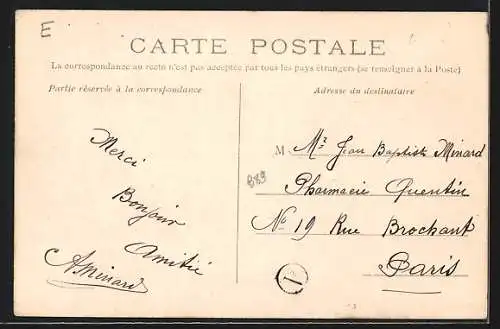 E
CARTE POSTALE
La correspondance au recto n'est pas acceptée par tous les pays étrangers (se renseigner à la Poste)
Partie réservée à la correspondance
Adresse du destinataire
Merci
Bonjour
Amitié
A Minard
889
M Mr Jean Baptiste Minard
Pharmacie Quentin
No 19 Rue Brochant
Paris